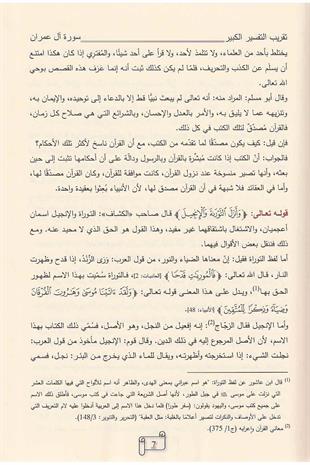 تقريب التفسير الكبير سورة آل عمران
يختلط بأحد من العلماء، ولا تتلمذ لأحد، ولا قرأ على أحد شيئًا، والمفتري إذا كان هكذا امتنع
أن يسلم عن الكذب والتحريف، فلما لم يكن كذلك ثبت أنه إنما عرف هذه القصص بوحي
الله تعالى.
وقال أبو مسلم: المراد منه: أنه تعالى لم يبعث نبيًّا قط إلا بالدعاء إلى توحيده، والإيمان به،
وتنزيهه عما لا يليق به، والأمر بالعدل والإحسان، وبالشرائع التي هي صلاح كل زمان،
فالقرآن مصدق لتلك الكتب في كل ذلك.
فإن قيل: كيف يكون مصدقًا لما تقدمه من الكتب، مع أن القرآن ناسخ لأكثر تلك الأحكام؟
فالجواب: أن الكتب إذا كانت مبشرة بالقرآن وبالرسول ودالة على أن أحكامها تثبت إلى حين
بعثه، وأنها تصير منسوخة عند نزول القرآن، كانت موافقة للقرآن، وكان القرآن مصدقًا لها،
وأما في العقائد فلا شبهة في أن القرآن مصدق لها، لأن الأنبياء بُعثوا بعقيدة واحدة.
قوله تعالى: ﴿وَأَنزَلَ ٱلتَّوْرَىٰةَ وَٱلْإِنجِيلَ﴾ قال صاحب «الكشاف»: التوراة والإنجيل اسمان
أعجميان، والاشتغال باشتقاقهما غير مفيد، وهذا القول هو الحق الذي لا محيد عنه. ومع
ذلك فننقل بعض الأقوال فيهما:
أما لفظ التوراة فقيل: إن معناها الضياء والنور، من قول العرب: وَرَى الزَّنْدُ، إذا قدح وظهرت
النار، قال الله تعالى: ﴿فَٱلْمُورِيَـٰتِ قَدْحًا﴾ [العاديات: 2]، فالتوراة سُمّيت بهذا الاسم لظهور
الحق بها(1)، ويدل على هذا المعنى قوله تعالى: ﴿وَلَقَدْ ءَاتَيْنَا مُوسَىٰ وَهَـٰرُونَ ٱلْفُرْقَانَ
وَضِيَآءً وَذِكْرًا لِّلْمُتَّقِينَ﴾ [الأنبياء: 48].
وأما الإنجيل فقال الزجّاج(2): إنه إفعيل من النجل، وهو الأصل، فسُمّي ذلك الكتاب بهذا
الاسم، لأن الأصل المرجوع إليه في ذلك الدين. وقال قوم: الإنجيل مأخوذ من قول العرب:
نجلت الشيء: إذا استخرجته وأظهرته، ويقال للماء الذي يخرج من البئر: نجل، فسمي
(1) قال ابن عاشور عن لفظ التوراة: "هو اسم عبراني بمعنى الهدى، والظاهر أنه اسم للألواح التي فيها الكلمات العشر
التي نزلت على موسى في جبل الطور، لأنها أصل الشريعة التي جاءت في كتب موسى، فأطلق ذلك الاسم
على جميع كتب موسى، واليهود يقولون: (سفر طورا) فلما دخل هذا الاسم إلى العربية أدخلوا عليه لام التعريف التي
تدخل على الأوصاف والنكرات لتصير أعلامًا بالغلبة مثل العقبة" (التحرير والتنوير: 148/3).
(2) معاني القرآن وإعرابه (ج1/ 375)